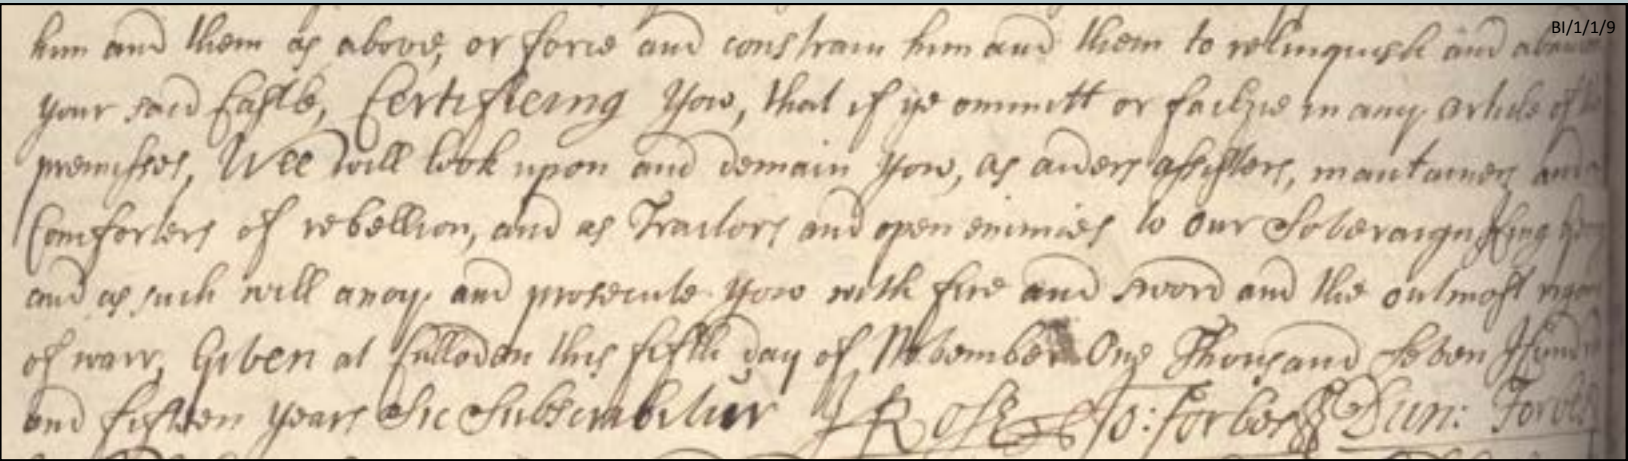 BI/1/1/9
him and them as above, or force and constrain him and them to relinquish and
your said Castle, Certifieing Yow, that if ye ommitt or failzie in any article of the
premisses, Wee will look upon and demain Yow, as aiders assisters, mantainers and
Comforters of rebellion, and as Traitors and open enimies to our Soveraign King
and as such will anoy and prosecute Yow with fire and sword and the outmost rigor
of warr, Given at Culloden this fifth day of November One Thousand Seven Hundred
and fifteen Years Sic Subscribitur J Rose Jo: Forbes Dun: Forbes